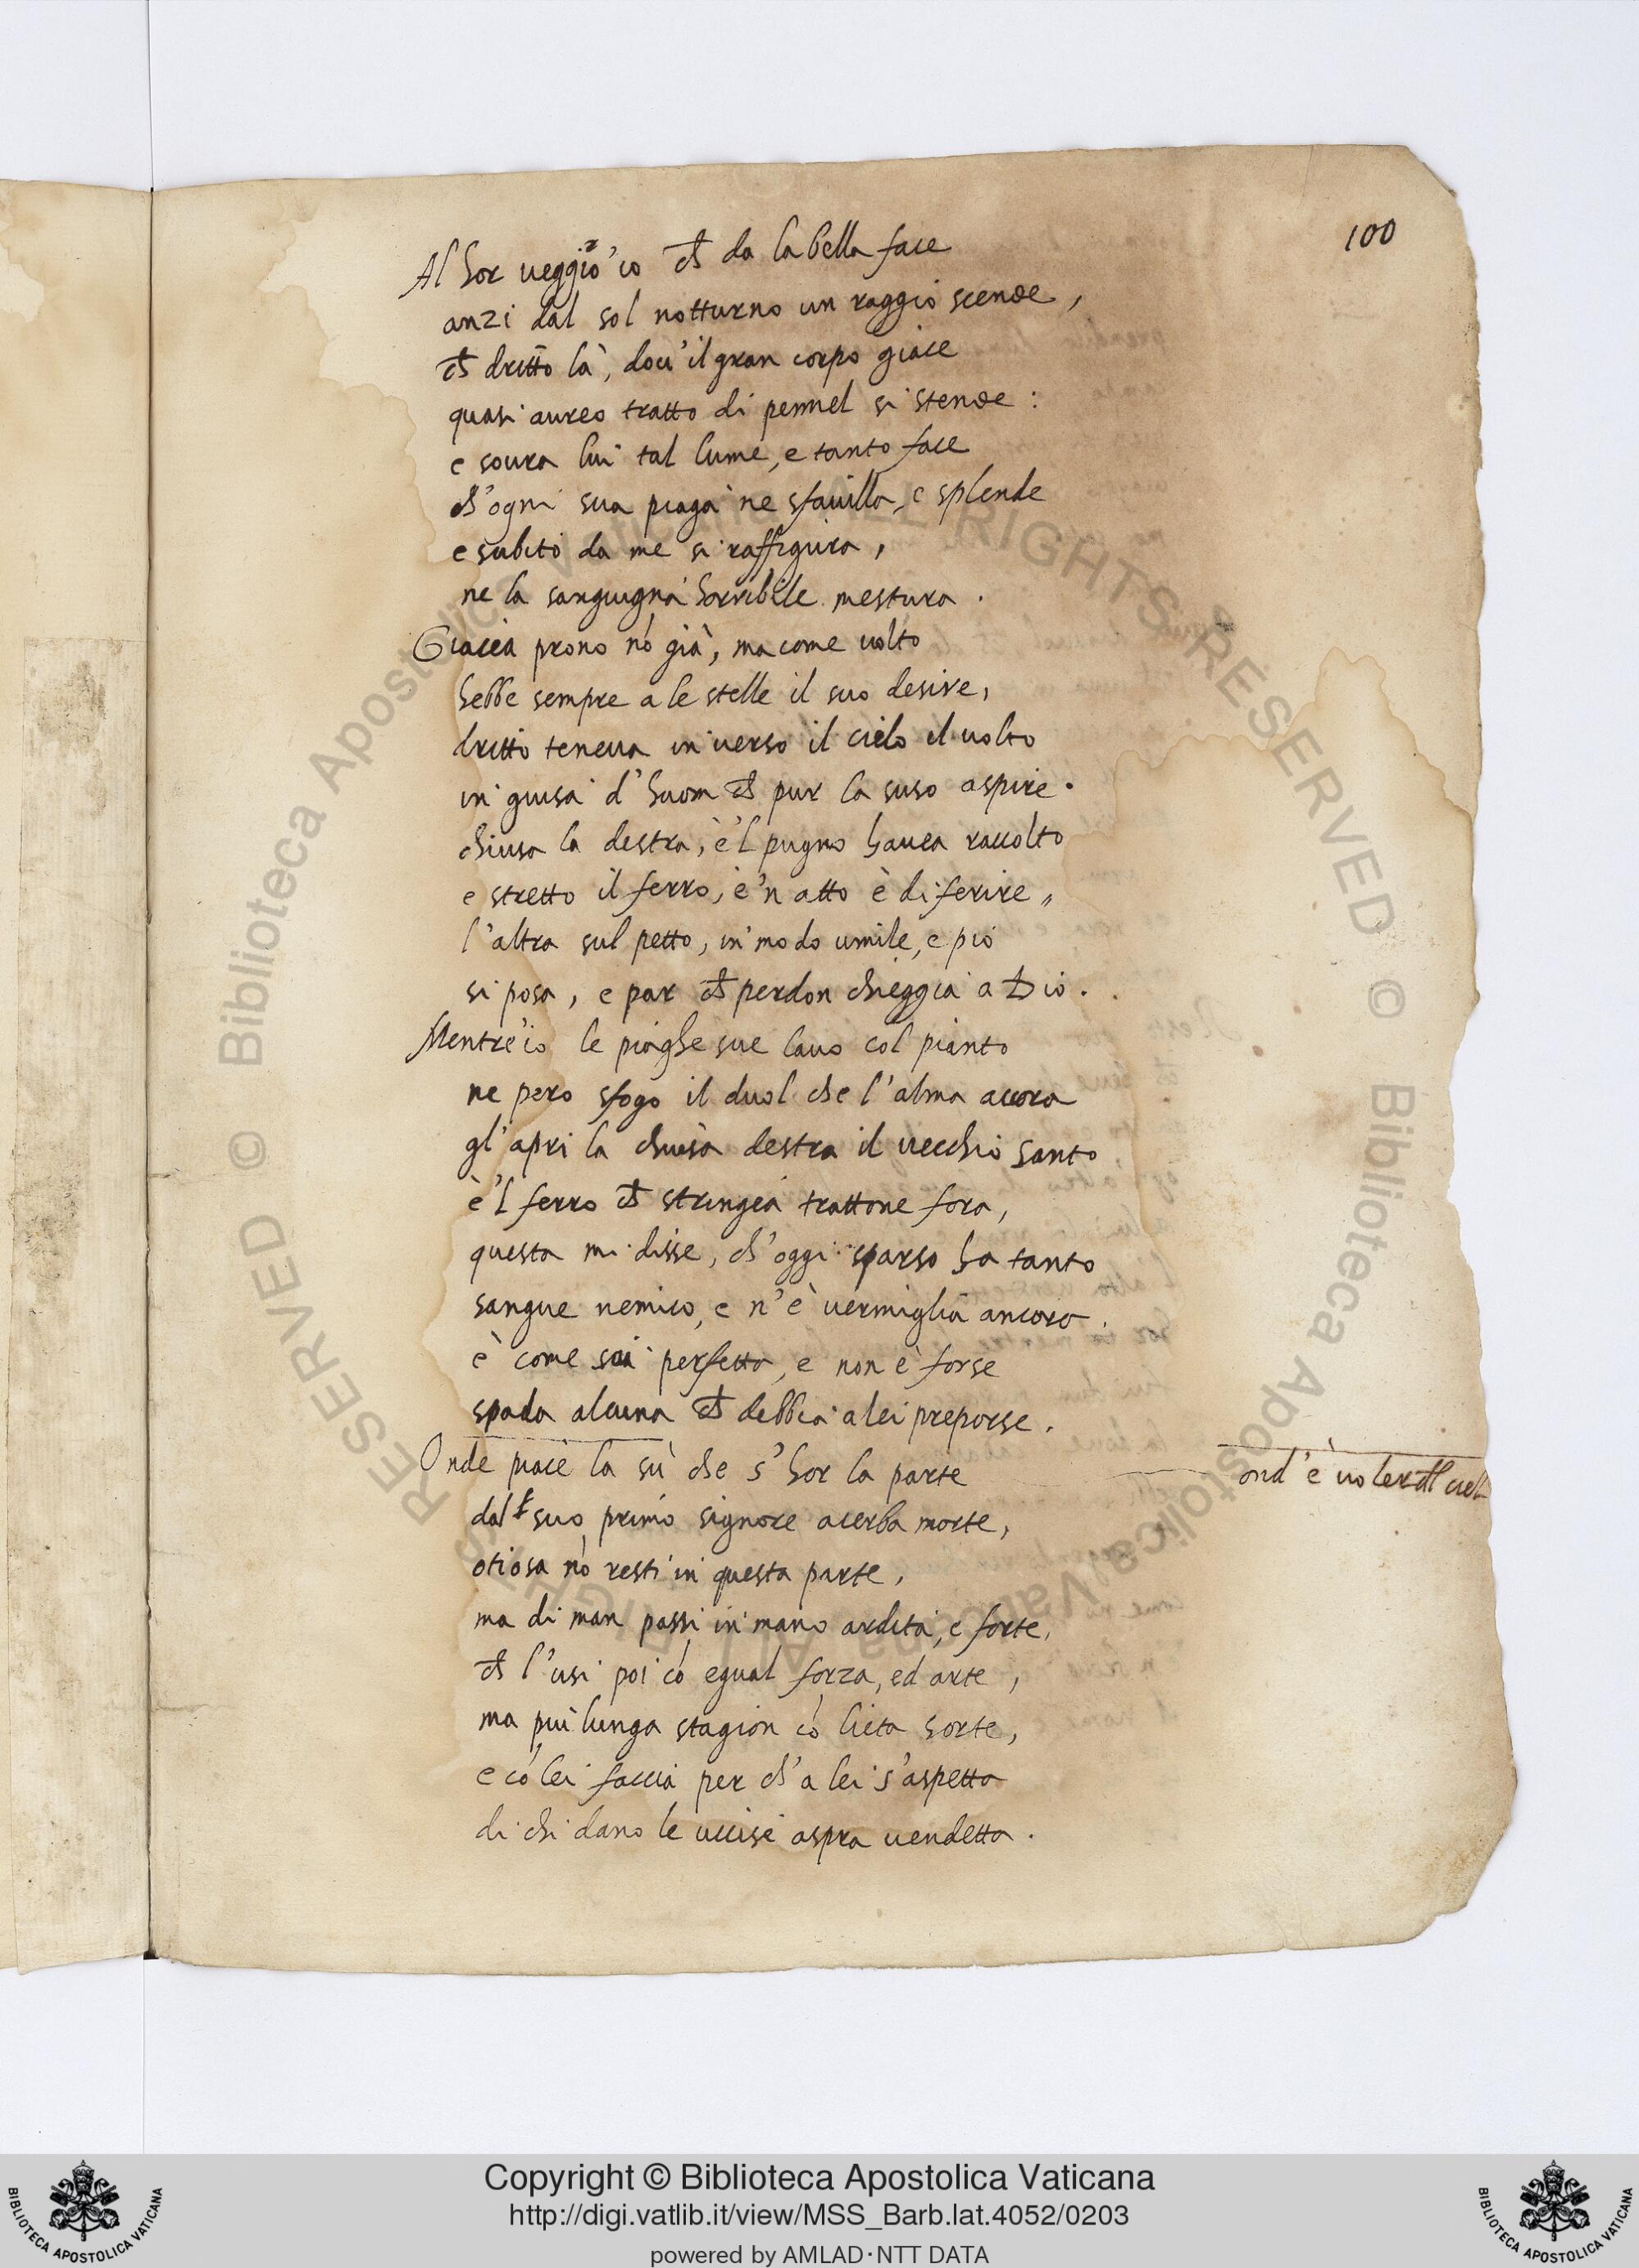 100
Al hor ueggio io ch̃ da la bella face
anzi dal sol notturno un raggio scende,
ch̃ dritto là, dou'il gran corpo giace
quasi aureo tratto di pennel si stende:
e soura lui tal lume, e tanto face
ch'ogni sua piaga ne sfauilla, e splende
e subito da me si raffigura,
ne la sanguigna horribile mestura.
Giacea prono nō già, ma come uolto
hebbe sempre a le stelle il suo desire,
dritto teneua inuerso il cielo il uolto
in guisa d'huom ch̃ pur la suso aspire.
chiusa la destra, e'l pugno hauea raccolto
e stretto il ferro, e'n atto è di ferire,
l'altra sul petto, in modo umile, e pio
si posa, e par ch̃ perdon chieggia a Dio.
Mentre io le piaghe sue lauo col pianto
ne pero sfogo il duol che l'alma accora
gl'apri la chiusa destra il uecchio santo
e'l ferro ch̃ stringea trattone fora,
questa mi disse, ch'oggi sparso ha tanto
sangue nemico, e n'è uermiglia ancora.
è come sai perfetta, e non è forse
spada alcuna ch̃ debbia a lei preporse.
Onde piace la sù che s'hor la parte
ond'è uoler del ciel
dal suo primo signore acerba morte,
otiosa nō resti in questa parte,
ma di man passi in mano ardita, e forte,
ch̃ l'usi poi cō egual forza, ed arte,
ma più lunga stagion cō lieta sorte,
e cō lei faccia per ch'a lei s'aspetta
di chi dano le uccise aspra uendetta.
Copyright © Biblioteca Apostolica Vaticana
http://digi.vatlib.it/view/MSS_Barb.lat.4052/0203
powered by AMLAD·NTT DATA
BIBLIOTECA APOSTOLICA VATICANA
BIBLIOTECA APOSTOLICA VATICANA